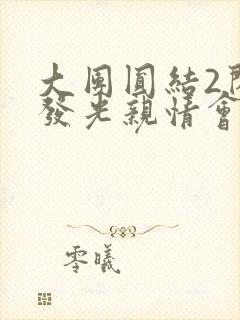 大團圓結2
發光親情會
零曦